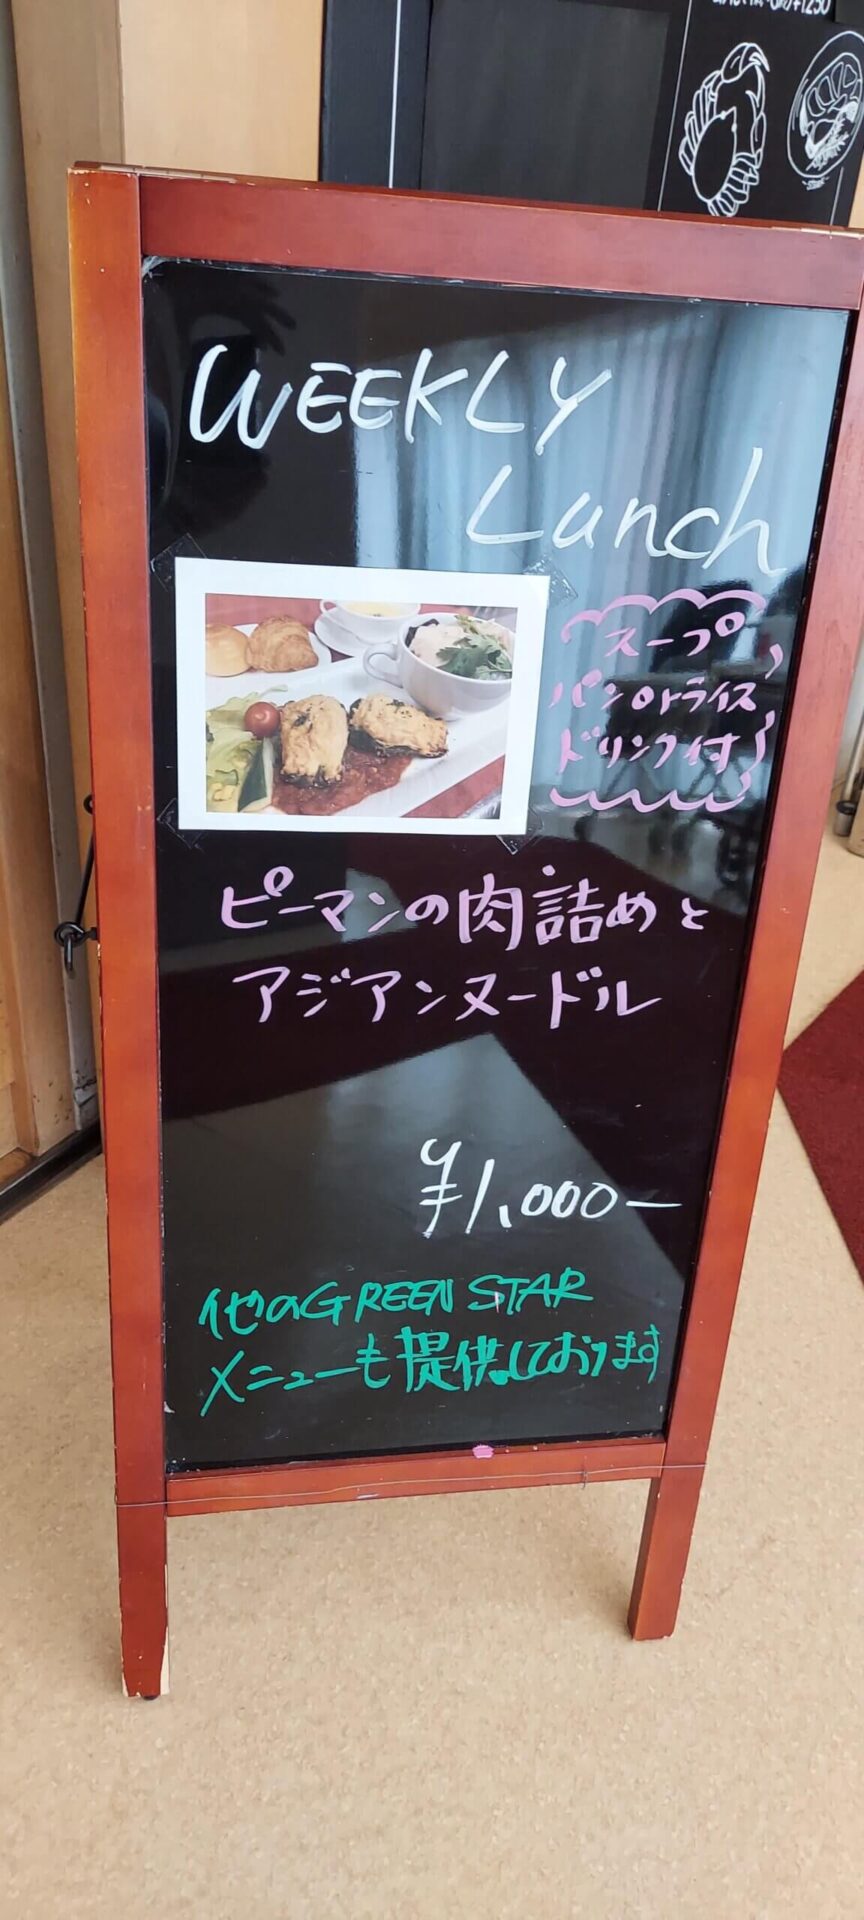 WEEKLY
Lunch
スープ
パンorライス
ドリンク付
ピーマンの肉詰めと
アジアンヌードル
¥1,000ー
他のGREEN STAR
メニューも提供しております